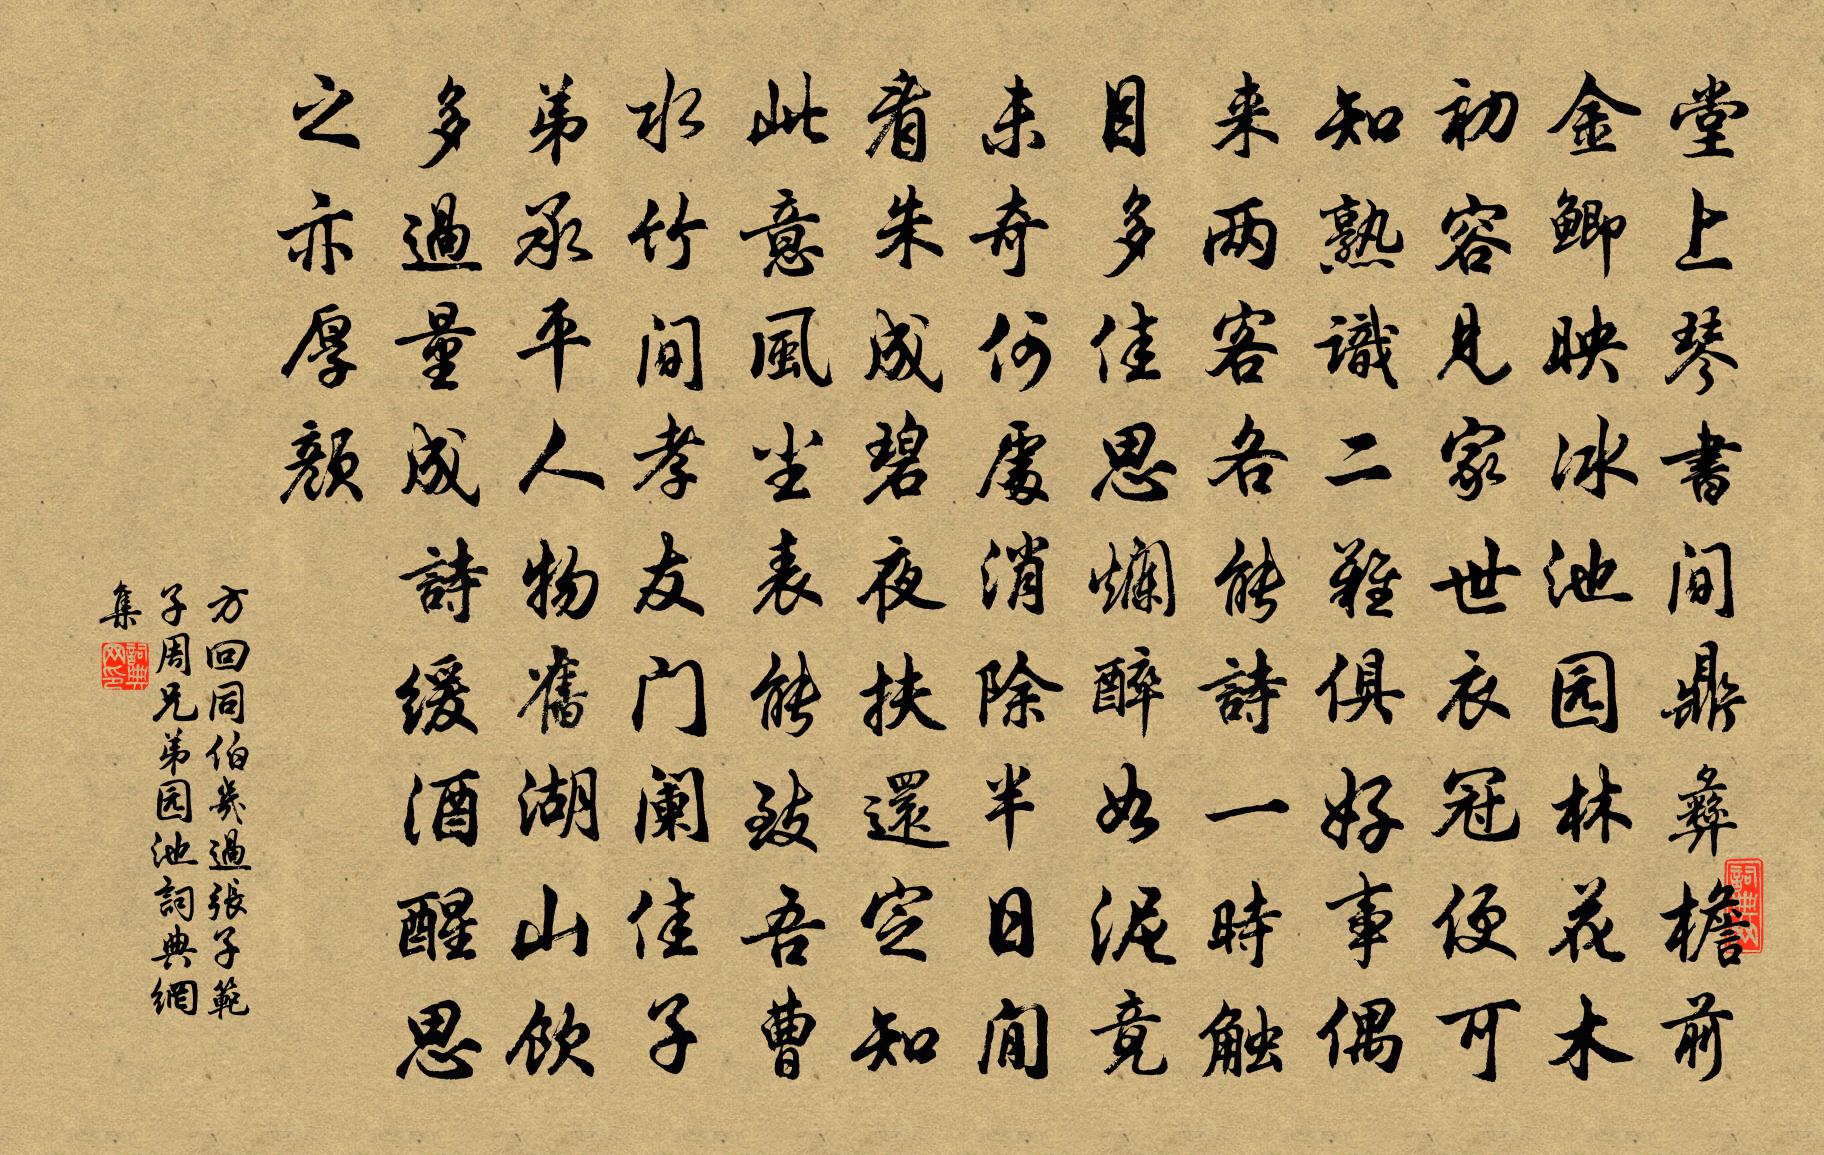 堂上琴書间鼎彝檐前
金鲫映冰池园林花木
初容见家世衣冠便可
知熟識二難俱好事偶
来两客各能詩一時触
目多佳思爛醉如泥竟
未奇何處消除半日闲
看朱成碧夜扶還定知
此意風尘表能致吾曹
水竹间孝友门阑佳子
弟承平人物舊湖山飲
多過量成詩缓酒醒思
之亦厚颜
方回同伯幾過張子範
子周兄弟园池詞典網
集
詞典网印
詞典网